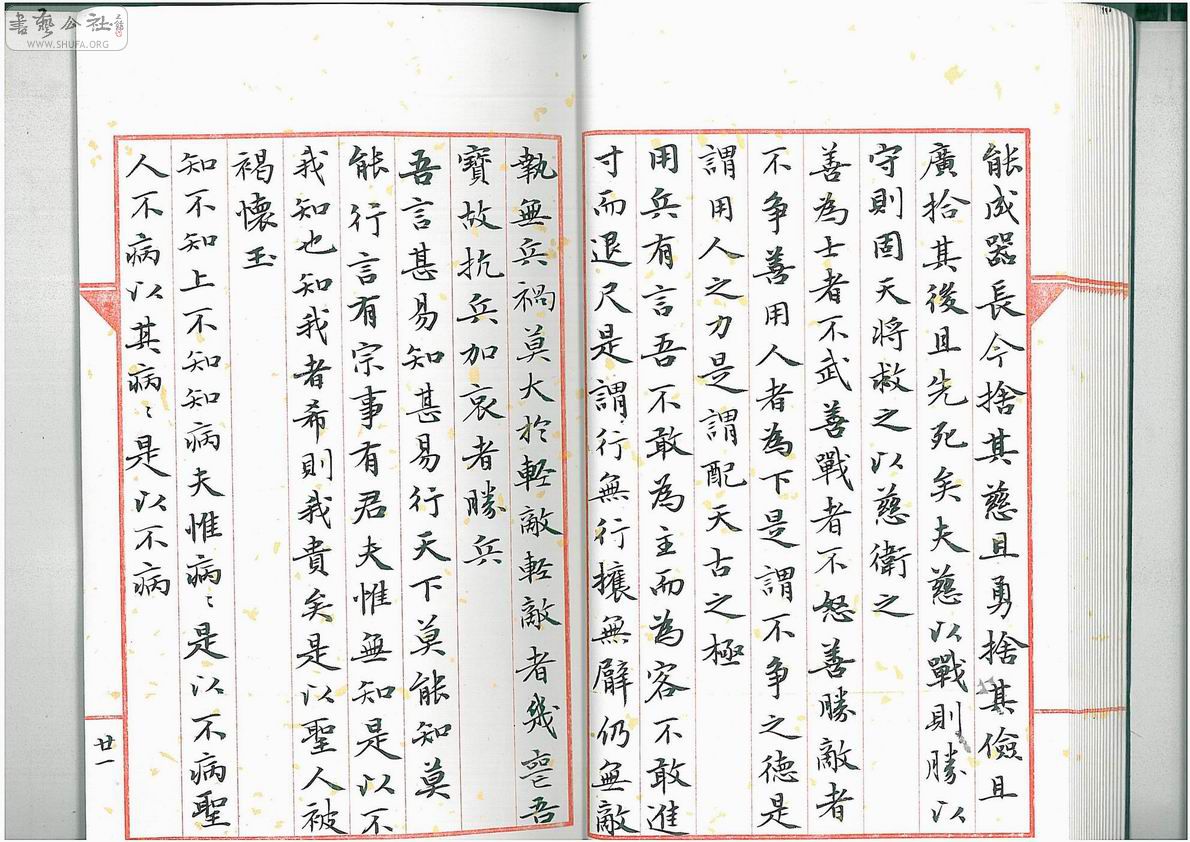 書藝公社
WWW.SHUFA.ORG
能成器長今捨其慈且勇捨其儉且
廣拾其後且先死矣夫慈以戰則勝以
守則固天將救之以慈衛之
善為士者不武善戰者不怒善勝敵者
不争善用人者為下是謂不争之德是
謂用人之力是謂配天古之極
用兵有言吾不敢為主而為客不敢進
寸而退尺是謂行無行攘無臂仍無敵
執無兵禍莫大於輕敵輕敵者幾喪吾
寶故抗兵加哀者勝兵
吾言甚易知甚易行天下莫能知莫
能行言有宗事有君夫惟無知是以不
我知也知我者希則我貴矣是以聖人被
褐懷玉
知不知上不知知病夫惟病〻是以不病聖
人不病以其病〻是以不病
廿一